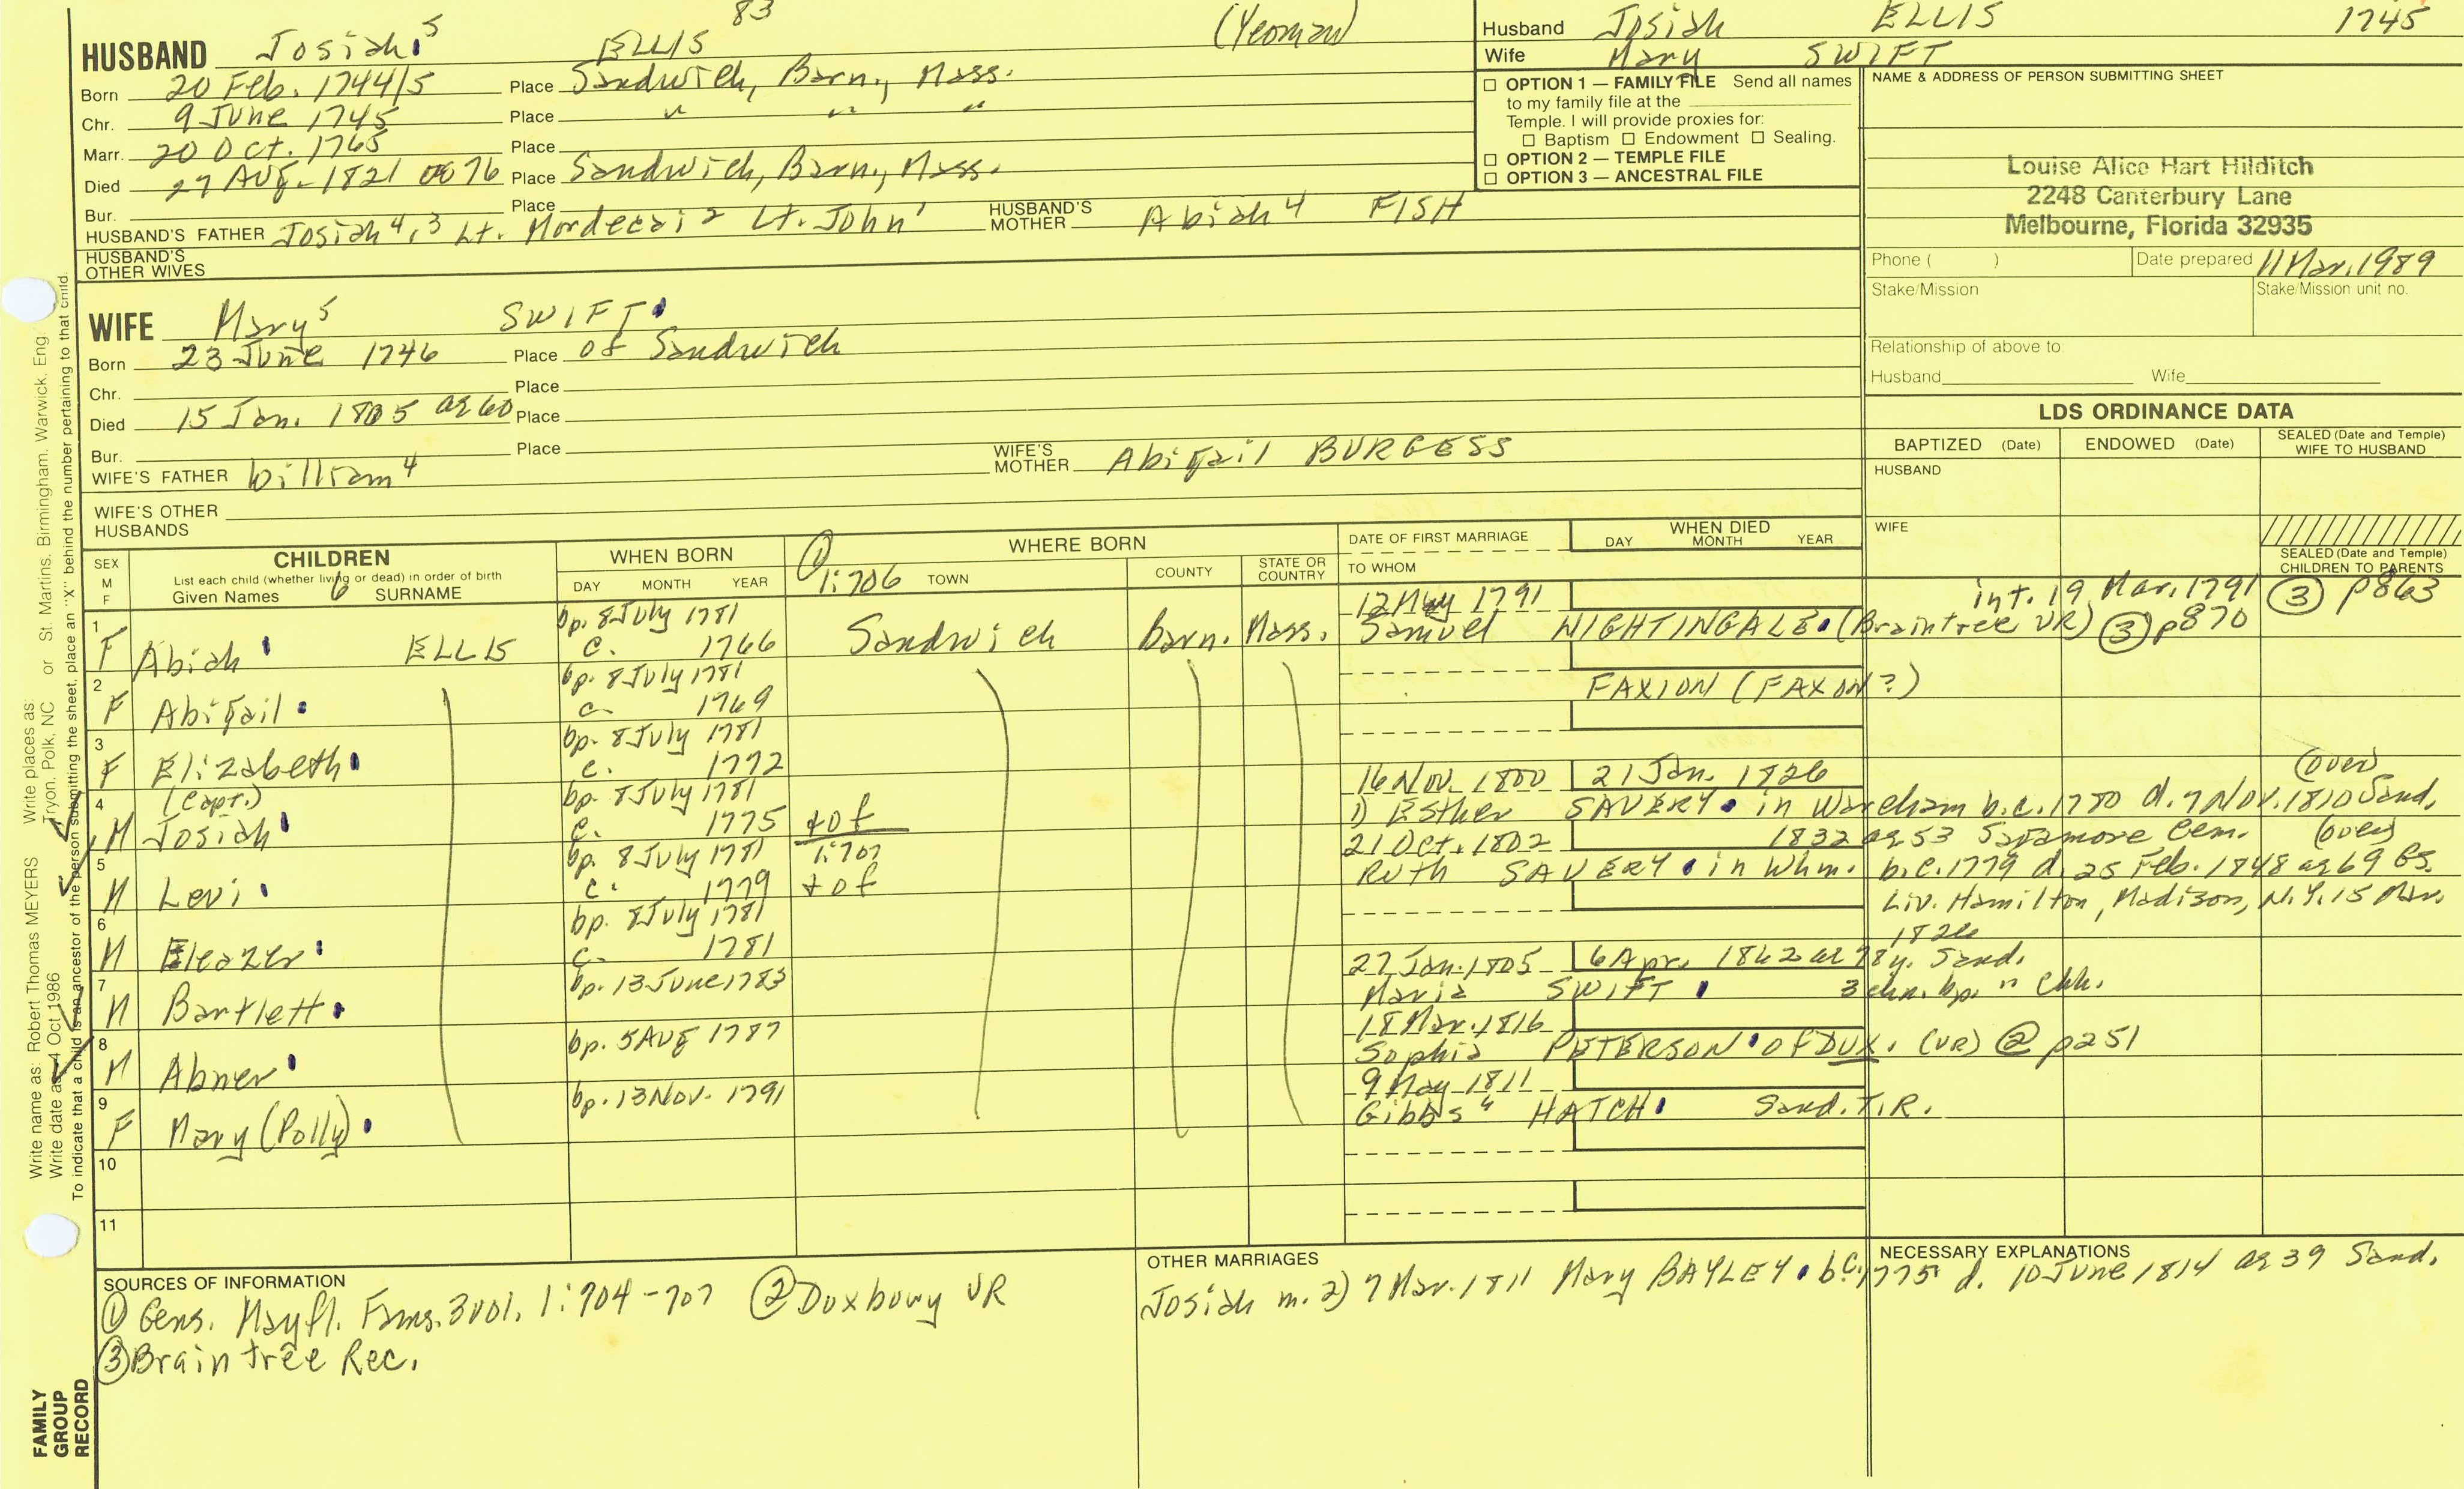 83
HUSBAND Josiah⁵ ELLIS (Yeoman)
Born 20 Feb. 1744/5 Place Sandwich, Barn., Mass.
Chr. 9 June 1745 Place " " "
Marr. 20 Oct. 1765 Place
Died 27 Aug. 1821 ae 76 Place Sandwich, Barn., Mass.
Bur. Place
HUSBAND'S FATHER Josiah⁴,³ Lt. Mordecai² Lt. John¹ HUSBAND'S MOTHER Abiah⁴ FISH
HUSBAND'S OTHER WIVES
Husband Josiah ELLIS 1745
Wife Mary SWIFT
☐ OPTION 1 — FAMILY FILE Send all names
to my family file at the
Temple. I will provide proxies for:
☐ Baptism ☐ Endowment ☐ Sealing.
☐ OPTION 2 — TEMPLE FILE
☐ OPTION 3 — ANCESTRAL FILE
NAME & ADDRESS OF PERSON SUBMITTING SHEET
Louise Alice Hart Hilditch
2248 Canterbury Lane
Melbourne, Florida 32935
Phone ( ) Date prepared 11 Mar. 1989
Stake/Mission Stake/Mission unit no.
Relationship of above to:
Husband Wife
WIFE Mary⁵ SWIFT
Born 23 June 1746 Place of Sandwich
Chr. Place
Died 15 Jan. 1805 ae 60 Place
Bur. Place
WIFE'S FATHER William⁴ WIFE'S MOTHER Abigail BURGESS
WIFE'S OTHER HUSBANDS
LDS ORDINANCE DATA
BAPTIZED (Date) ENDOWED (Date) SEALED (Date and Temple) WIFE TO HUSBAND
HUSBAND
WIFE
SEALED (Date and Temple) CHILDREN TO PARENTS
SEX M F
CHILDREN
List each child (whether living or dead) in order of birth
Given Names 6 SURNAME
WHEN BORN
DAY MONTH YEAR
① 1:706
WHERE BORN
TOWN COUNTY STATE OR COUNTRY
DATE OF FIRST MARRIAGE
TO WHOM
WHEN DIED
DAY MONTH YEAR
bp. 8 July 1781 12 May 1791 int. 19 Mar. 1791 ③ p863
1 F Abiah ELLIS c. 1766 Sandwich Barn. Mass. Samuel NIGHTINGALE (Braintree VR) ③ p870
bp. 8 July 1781
2 F Abigail c. 1769 FAXION (FAXON?)
bp. 8 July 1781
3 F Elizabeth c. 1772
bp. 8 July 1781 16 Nov. 1800 21 Jan. 1826 (over)
4 M (Capt.) Josiah c. 1775 + of 1) Esther SAVERY in Wareham b.c. 1780 d. 7 Nov. 1810 Sand.
bp. 8 July 1781 1:707 21 Oct. 1802 1832 ae 53 Sagamore Cem. (over)
5 M Levi c. 1779 + of Ruth SAVERY in Whm. b.c. 1779 d. 25 Feb. 1848 ae 69 GS.
bp. 8 July 1781 Liv. Hamilton, Madison, N.Y. 15 Mar. 1826
6 M Eleazer c. 1781
bp. 13 June 1783 27 Jan. 1805 6 Apr. 1862 ae 78y. Sand.
7 M Bartlett Maria SWIFT 3 chn. bp. in Chh.
bp. 5 Aug 1787 18 Mar. 1816
8 M Abner Sophia PETERSON of DUX. (VR) ② p251
bp. 13 Nov. 1791 9 May 1811
9 F Mary (Polly) Gibbs HATCH Sand. T.R.
10
11
SOURCES OF INFORMATION
① Gens. Mayfl. Fams. 3 vol. 1:704-707 ② Duxbury VR
③ Braintree Rec.
OTHER MARRIAGES
Josiah m. 2) 7 Mar. 1811 Mary BAYLEY b c. 1775 d. 10 June 1814 ae 39 Sand.
NECESSARY EXPLANATIONS
Write name as: Robert Thomas MEYERS Write places as: Tryon, Polk, NC or St. Martins, Birmingham, Warwick, Eng.
Write date as: 4 Oct 1986
To indicate that a child is an ancestor of the person submitting the sheet, place an "X" behind the number pertaining to that child.
FAMILY GROUP RECORD